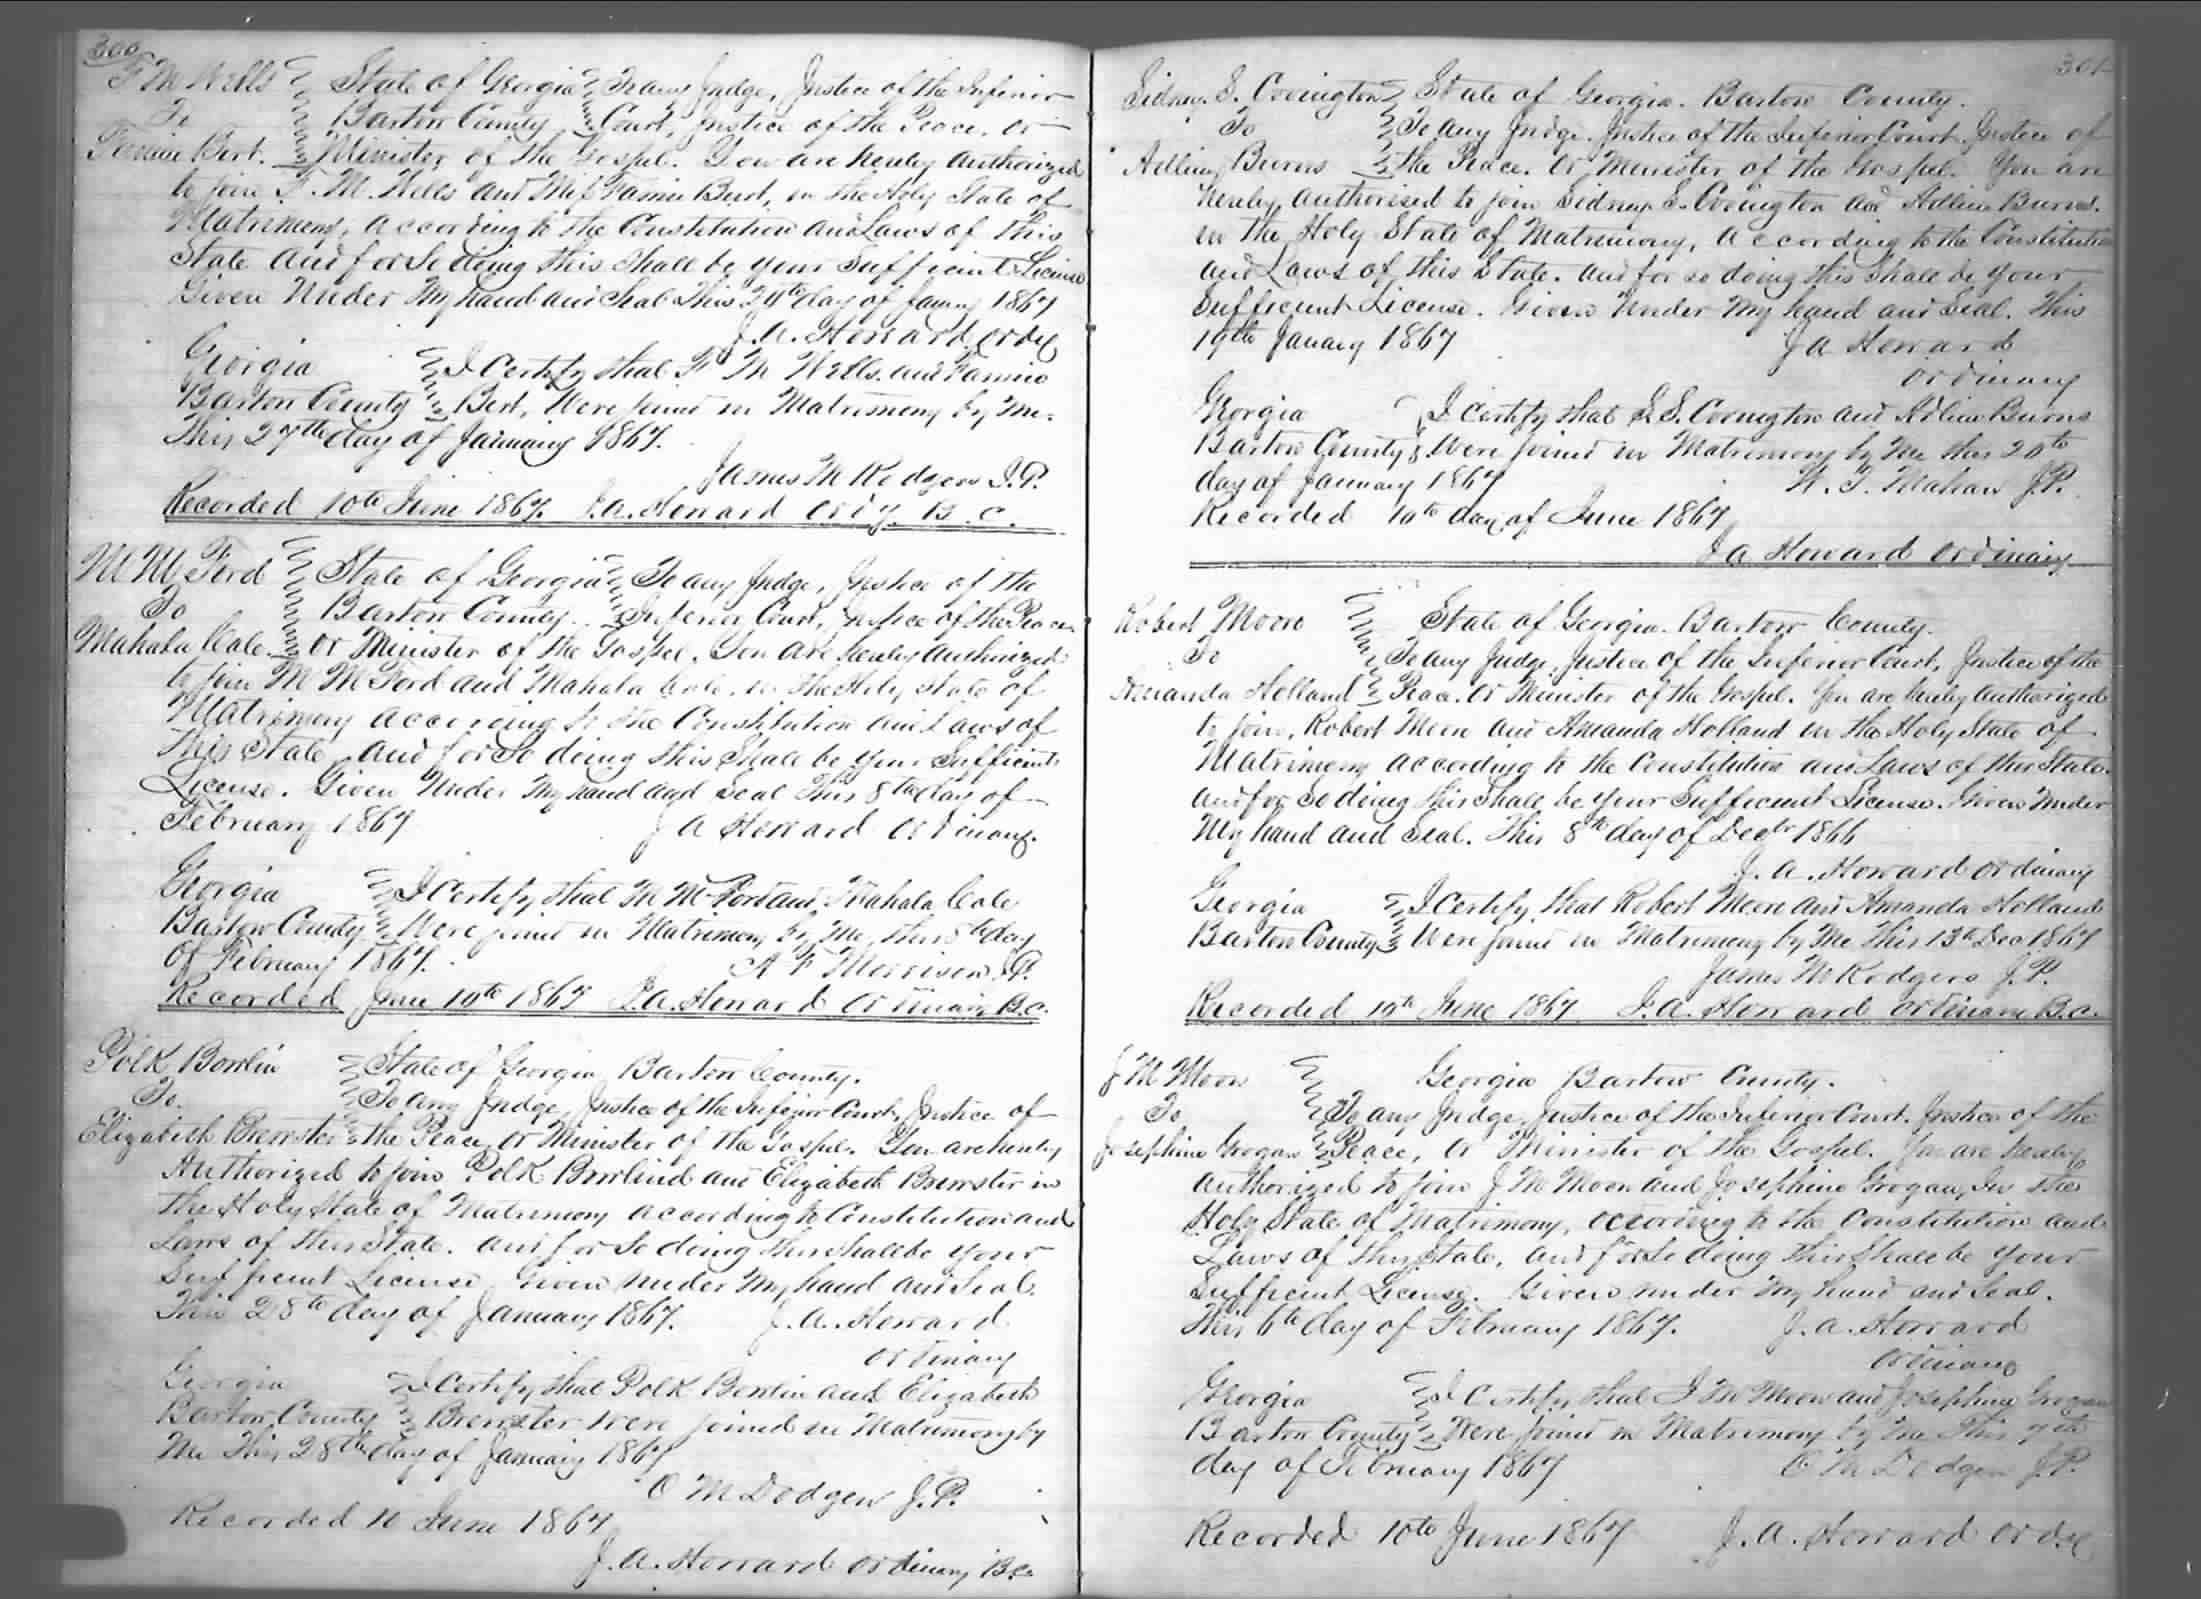 300
F M Wells State of Georgia To any Judge, Justice of the Inferior
To Barton County Court, Justice of the Peace, or
Fannie Bert. Minister of the Gospel. You are hereby authorized
to join F. M. Wells and Miss Fannie Bert, in the Holy State of
Matrimony, according to the Constitution and Laws of this
State and for So doing this Shall be your Sufficient License
Given Under My hand and Seal This day of January 1867
J. A. Howard ordy
Georgia I Certify that F M Wells and Fannie
Barton County Bert, Were joined in Matrimony by me.
This 27th day of January 1867.
James M Rodgers J.P.
Recorded 10th June 1867. J. A. Howard Ordy. B. C.
M M Ford State of Georgia To any Judge, Justice of the
To Barton County. Inferior Court, Justice of the Peace
Mahala Cole. or Minister of the Gospel. You are hereby authorized
to join M M Ford and Mahala Cole. in the Holy State of
Matrimony according to the Constitution and Laws of
this State and for So doing this Shall be your Sufficient
License. Given Under My hand and Seal This 8th day of
February 1867 J A Howard Ordinary.
Georgia I Certify that M M Ford and Mahala Cole
Barton County Were joined in Matrimony by Me, this day
of February 1867. A F Morrison J.P.
Recorded June 10th 1867 J. A. Howard Ordinary B.C.
Polk Bowlin State of Georgia Barton County.
To To any Judge, Justice of the Inferior Court, Justice of
Elizabeth Brewster the Peace, or Minister of the Gospel. You are hereby
Authorized to join Polk Bowlind and Elizabeth Brewster in
the Holy State of Matrimony according to Constitution and
Laws of this State. and for So doing this shall be your
Sufficient License, Given under My hand and Seal.
This 28th day of January 1867. J. A. Howard
ordinary
Georgia I Certify that Polk Bowlin and Elizabeth
Barton County Brewster were joined in Matrimony by
Me This 28th day of January 1867
O M Dodgen J.P.
Recorded 10 June 1867
J. A. Howard Ordinary BC
301
Sidney S. Covington State of Georgia. Barton County.
To To any Judge. Justice of the Inferior Court Justice of
Adline Burns the Peace. or Minister of the Gospel. You are
hereby, authorised to join Sidney S. Covington and Adline Burns.
in the Holy State of Matrimony, according to the Constitution
and Laws of this State. and for so doing this shall be your
Sufficient License. Given under My hand and Seal. This
19th January 1867 J A Howard
ordinary
Georgia I Certify that S. S. Covington and Adline Burns
Barton County Were joined in Matrimony by Me this 20th
day of January 1867 Mahan J.P.
Recorded 10th day of June 1867
J A Howard Ordinary
Robert Moon State of Georgia. Barton County.
To To any Judge, Justice of the Inferior Court, Justice of the
Amanda Holland Peace. or Minister of the Gospel. You are hereby authorized
to join, Robert Moon and Amanda Holland in the Holy State of
Matrimony according to the Constitution and Laws of this State.
and for So doing this shall be your Sufficient License. Given under
My hand and Seal. This 8th day of Decbr 1866
J. A. Howard ordinary
Georgia I Certify that Robert Moon and Amanda Holland
Barton County Were joined in Matrimony by Me This 13th Dec 1867
James M Rodgers J.P.
Recorded 10th June 1867 J. A. Howard Ordinary B.C.
J M Moon Georgia Barton County.
To To any Judge, Justice of the Inferior Court. Justice of the
Josephine Grogan Peace, or Minister of the Gospel. You are hereby
authorized to join J M Moon and Josephine Grogan, In the
Holy State of Matrimony, according to the Constitution and
Laws of this State, and for So doing this shall be your
Sufficient License. Given under My hand and Seal.
This 6th day of February 1867. J. A. Howard
Ordinary
Georgia I Certify that J M Moon and Josephine Grogan
Barton County Were joined in Matrimony by Me This 7th
day of February 1867 O M Dodgen J.P.
Recorded 10th June 1867 J. A. Howard Ordy